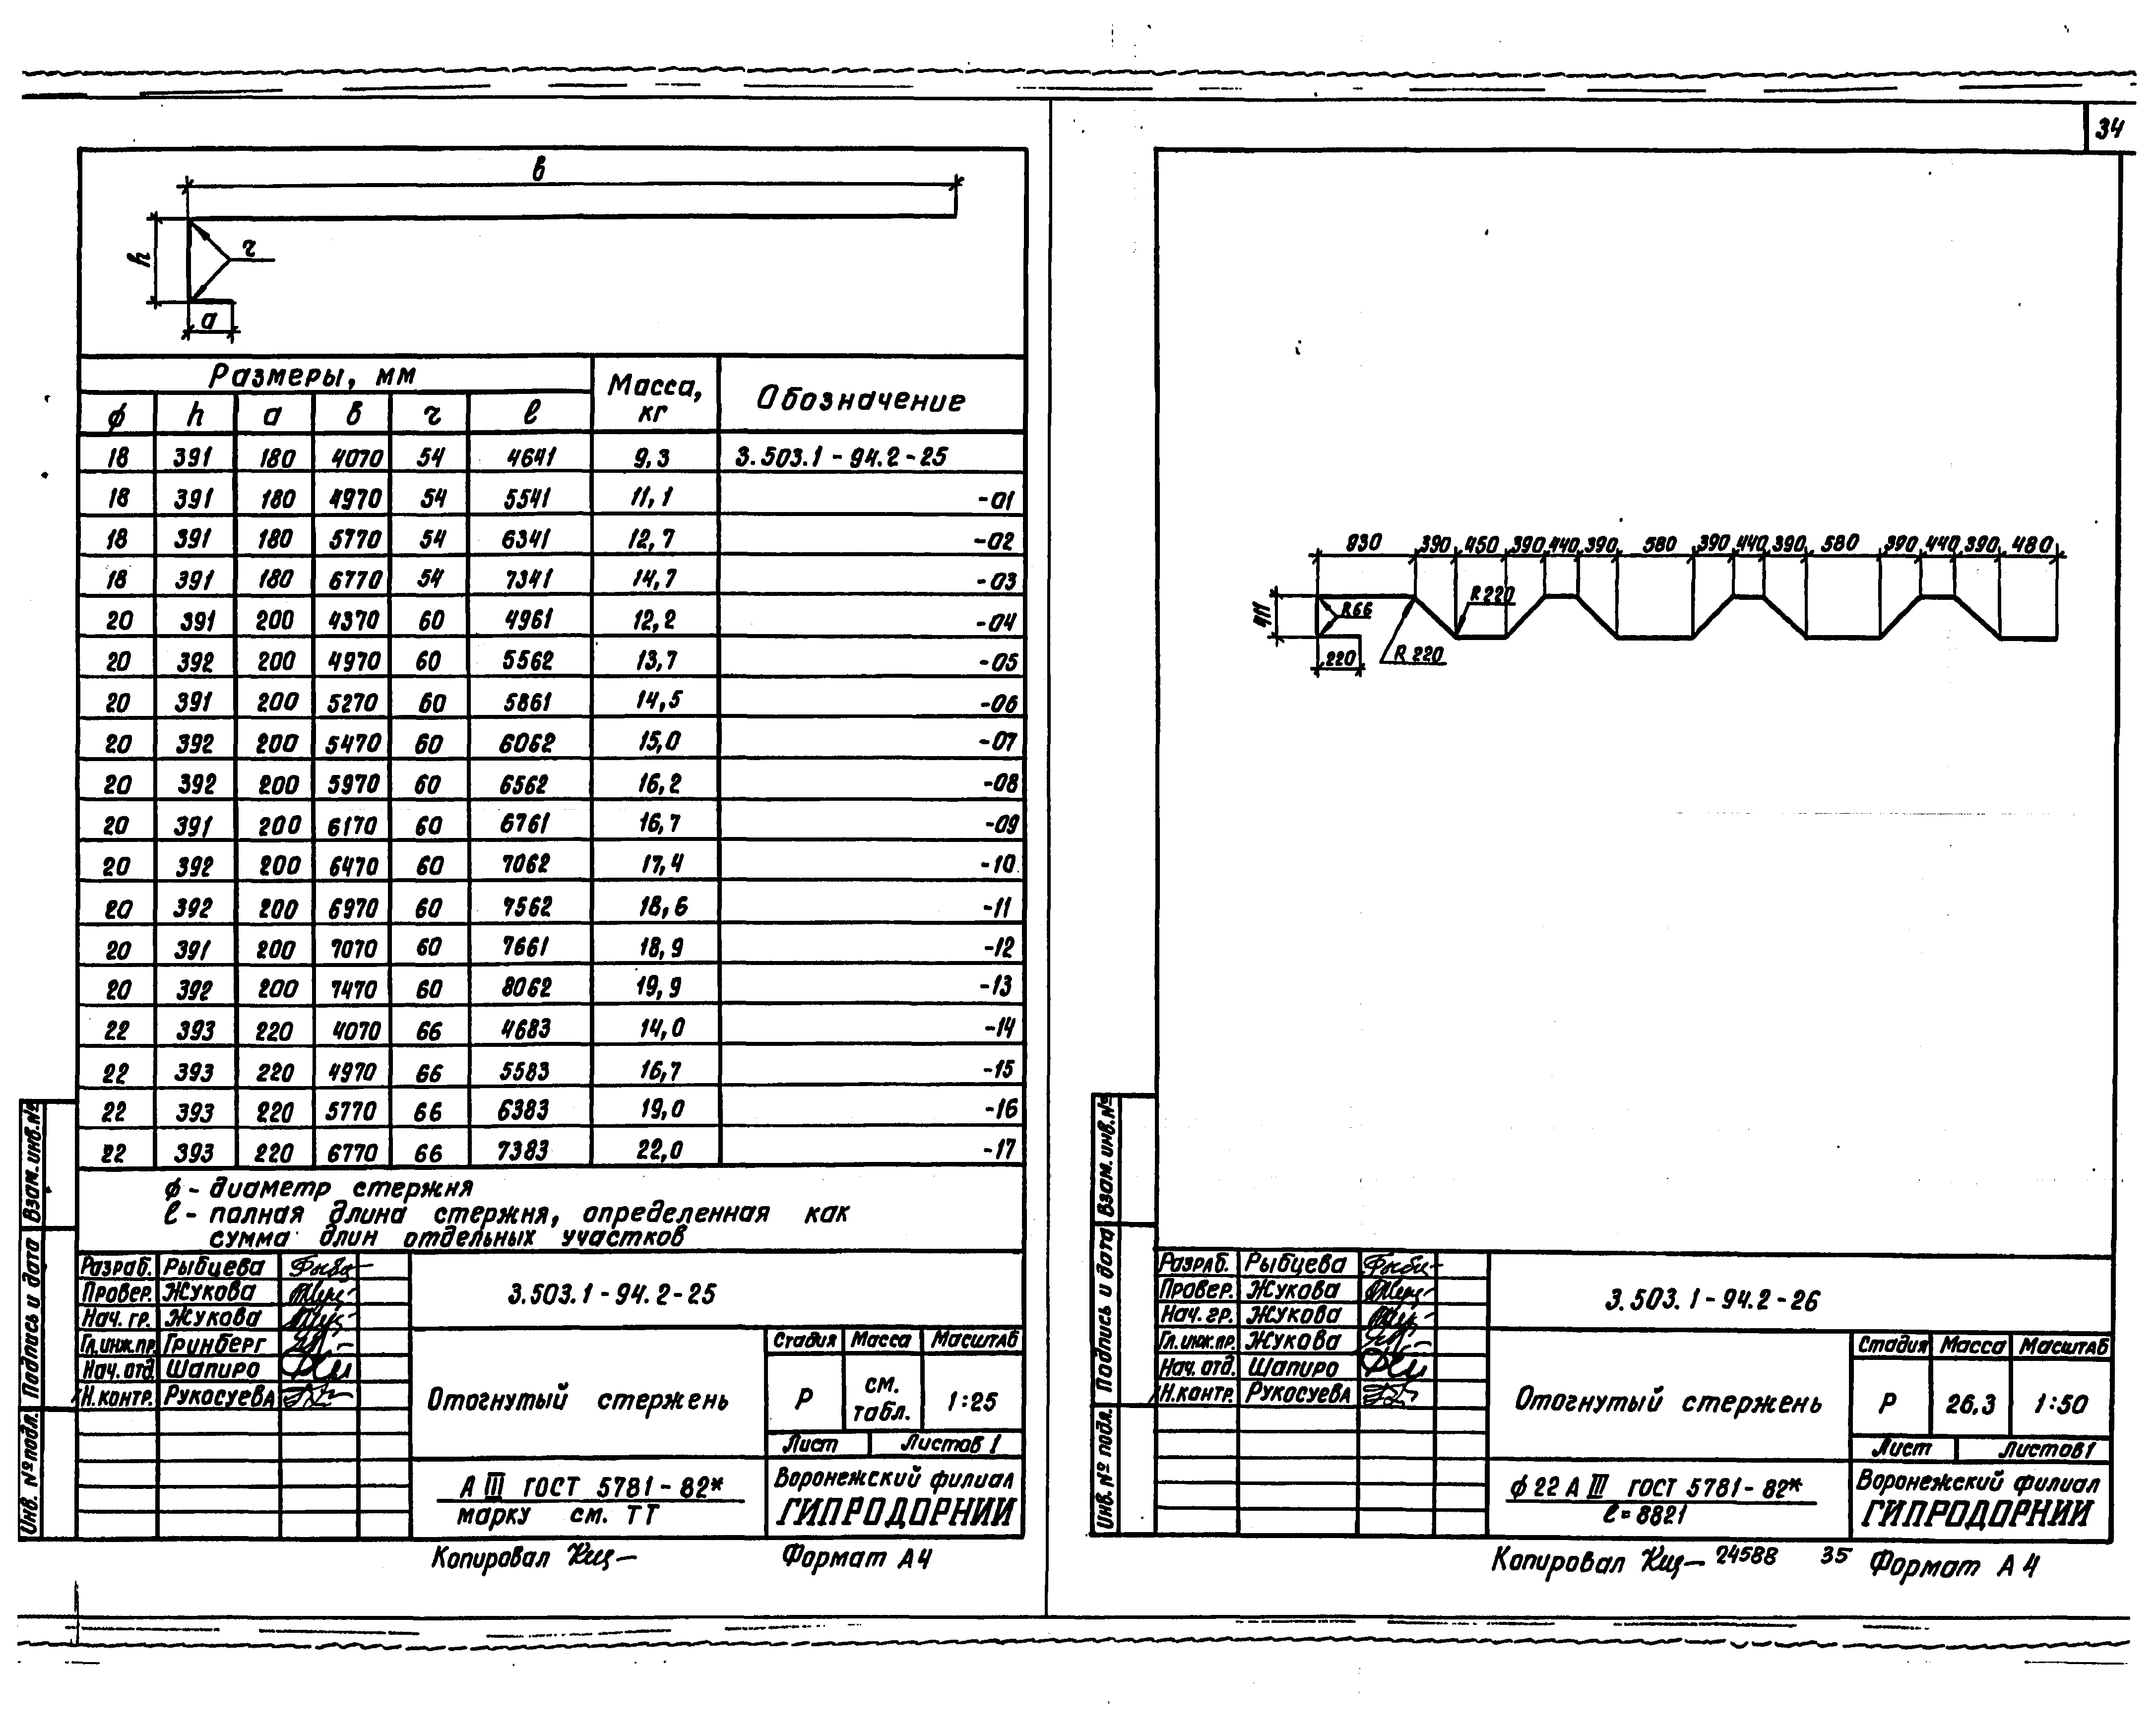 34
в
h
r
а
Размеры, мм Масса, кг Обозначение
ф h а в r ℓ
18 391 180 4070 54 4641 9,3 3.503.1-94.2-25
18 391 180 4970 54 5541 11,1 -01
18 391 180 5770 54 6341 12,7 -02
18 391 180 6770 54 7341 14,7 -03
20 391 200 4370 60 4961 12,2 -04
20 392 200 4970 60 5562 13,7 -05
20 391 200 5270 60 5861 14,5 -06
20 392 200 5470 60 6062 15,0 -07
20 392 200 5970 60 6562 16,2 -08
20 391 200 6170 60 6761 16,7 -09
20 392 200 6470 60 7062 17,4 -10
20 392 200 6970 60 7562 18,6 -11
20 391 200 7070 60 7661 18,9 -12
20 392 200 7470 60 8062 19,9 -13
22 393 220 4070 66 4683 14,0 -14
22 393 220 4970 66 5583 16,7 -15
22 393 220 5770 66 6383 19,0 -16
22 393 220 6770 66 7383 22,0 -17
ф - диаметр стержня
ℓ - полная длина стержня, определенная как
сумма длин отдельных участков
Взам. инв. №
Подпись и дата
Инв. № подл.
Разраб. Рыбцева
Провер. Жукова
Нач. гр. Жукова
Гл. инж. пр. Гринберг
Нач. отд. Шапиро
Н. контр. Рукосуева
3.503.1-94.2-25
Отогнутый стержень
Стадия Масса Масштаб
Р см. табл. 1:25
Лист Листов 1
А III ГОСТ 5781-82*
марку см. ТТ
Воронежский филиал
ГИПРОДОРНИИ
Копировал
Формат А4
930 390 450 390 440 390 580 390 440 390 580 390 440 390 480
411
R66
R220
220
R220
Взам. инв. №
Подпись и дата
Инв. № подл.
Разраб. Рыбцева
Провер. Жукова
Нач. гр. Жукова
Гл. инж. пр. Жукова
Нач. отд. Шапиро
Н. контр. Рукосуева
3.503.1-94.2-26
Отогнутый стержень
Стадия Масса Масштаб
Р 26,3 1:50
Лист Листов 1
ф 22 А III ГОСТ 5781-82*
ℓ=8821
Воронежский филиал
ГИПРОДОРНИИ
Копировал 24588 35 Формат А4